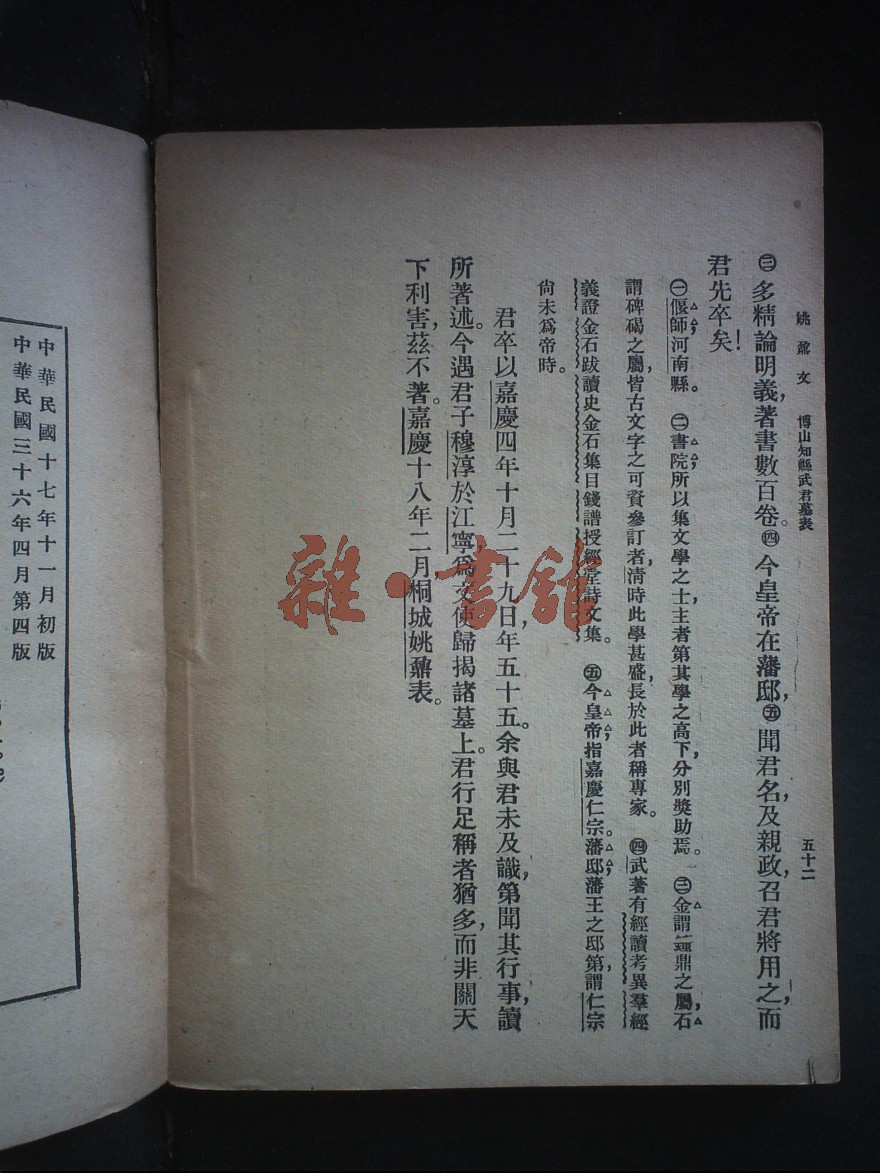 姚鼐文　博山知縣武君墓表　五十二
㊂多精論明義，著書數百卷。㊃今皇帝在藩邸，㊄聞君名，及親政，召君將用之，而
君先卒矣！
㊀偃師，河南縣。　㊁書院，所以集文學之士，主者第其學之高下，分別獎助焉。　㊂金謂鐘鼎之屬，石
謂碑碣之屬，皆古文字之可資參訂者，清時此學甚盛，長於此者稱專家。　㊃武著有經讀考異羣經
義證金石跋讀史金石集目錢譜授經堂詩文集。　㊄今皇帝，指嘉慶仁宗。藩邸，藩王之邸第，謂仁宗
尙未爲帝時。
君卒以嘉慶四年十月二十九日，年五十五。余與君未及識，第聞其行事，讀
所著述。今遇君子穆淳於江寧，爲文使歸揭諸墓上。君行足稱者猶多，而非關天
下利害，茲不著。嘉慶十八年二月，桐城姚鼐表。
雜·書館
中華民國十七年十一月初版
中華民國三十六年四月第四版